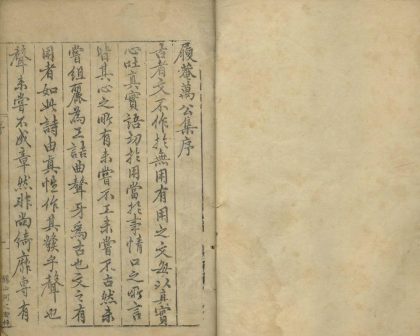 履菴萬公集序
古者文不作於無用有用之文每以真實
心吐真實語切於用當於事情口之所言
皆其心之所有未嘗不工未嘗不古然未
嘗組麗為工詰曲聱牙為古也文之有
用者如此詩由真情作其發乎聲也
聲未嘗不成章然非尚綺靡專有